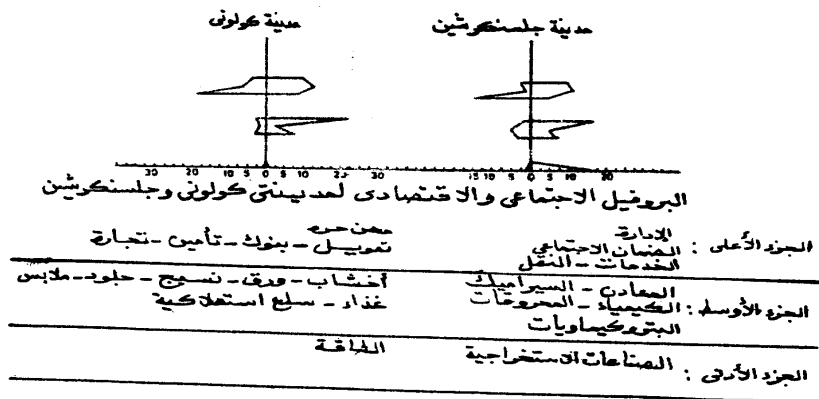 مدينة جلسنكرشين
مدينة كولونى
30 20 10 5 0 5 10 20 30
15 10 5 0 5 10 20
البروفيل الاجتماعى والاقتصادى لمدينتى كولونى وجلسنكرشين
الجزء الأعلى :
الإدارة
الضمان الاجتماعى
الخدمات - النقل
مهن حره
تمويل - بنوك - تأمين - تجارة
الجزء الأوسط :
المعادن - السيراميك
الكيمياء - المحروقات
البتروكيماويات
أخشاب - ورق - نسيج - جلود - ملابس
غذاء - سلع استهلاكية
الجزء الأدنى :
الصناعات الاستخراجية
الطاقة